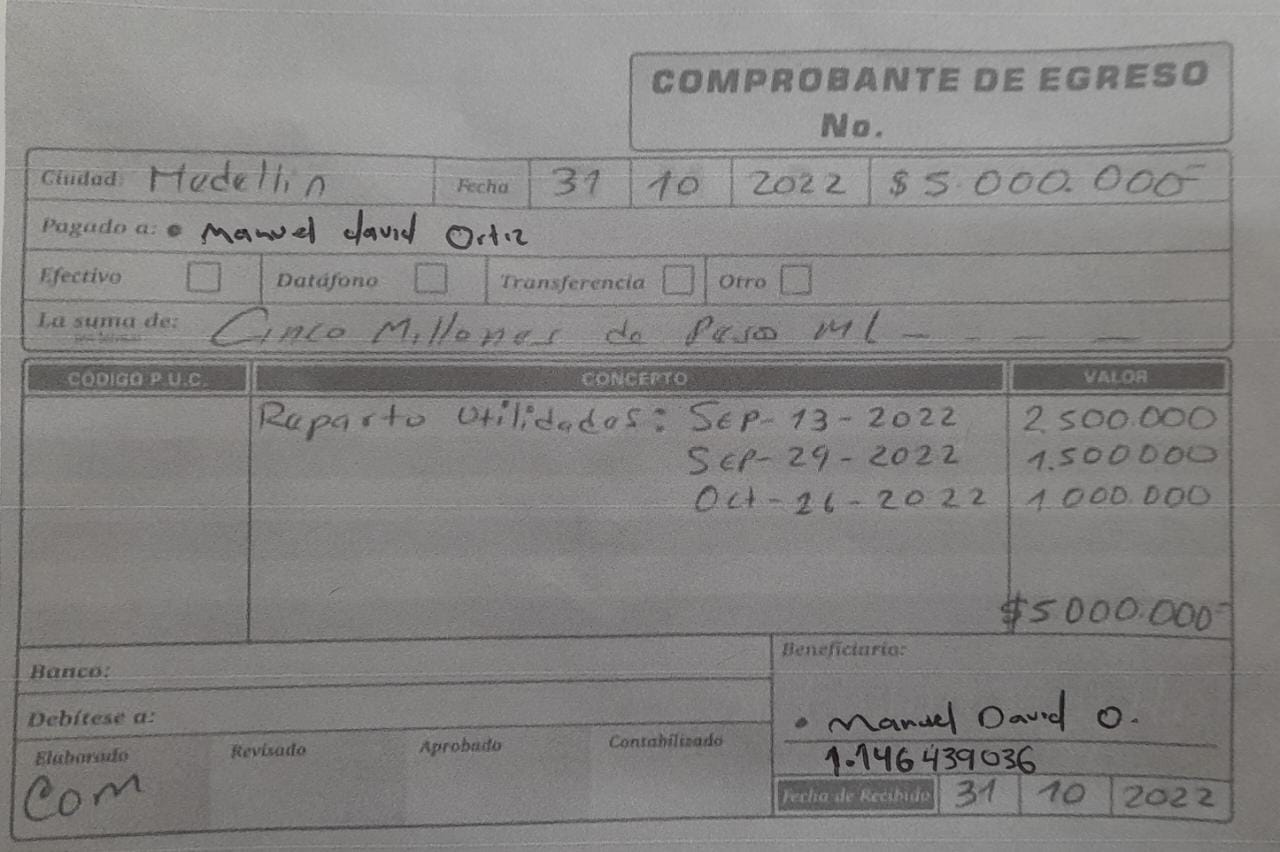 COMPROBANTE DE EGRESO
No.
Ciudad Medellin Fecha 31 10 2022 $ 5.000.000=
Pagado a: • Manuel david Ortiz
Efectivo Datáfono Transferencia Otro
La suma de: Cinco Millones de Pesos ML - - - -
CÓDIGO P.U.C. CONCEPTO VALOR
Reparto Utilidades: Sep-13-2022 2.500.000
Sep-29-2022 1.500000
Oct-26-2022 1.000.000
$5.000.000=
Banco:
Debítese a:
Beneficiario:
• Manuel David O.
1.146439036
Elaborado Revisado Aprobado Contabilizado
Com
Fecha de Recibido 31 10 2022